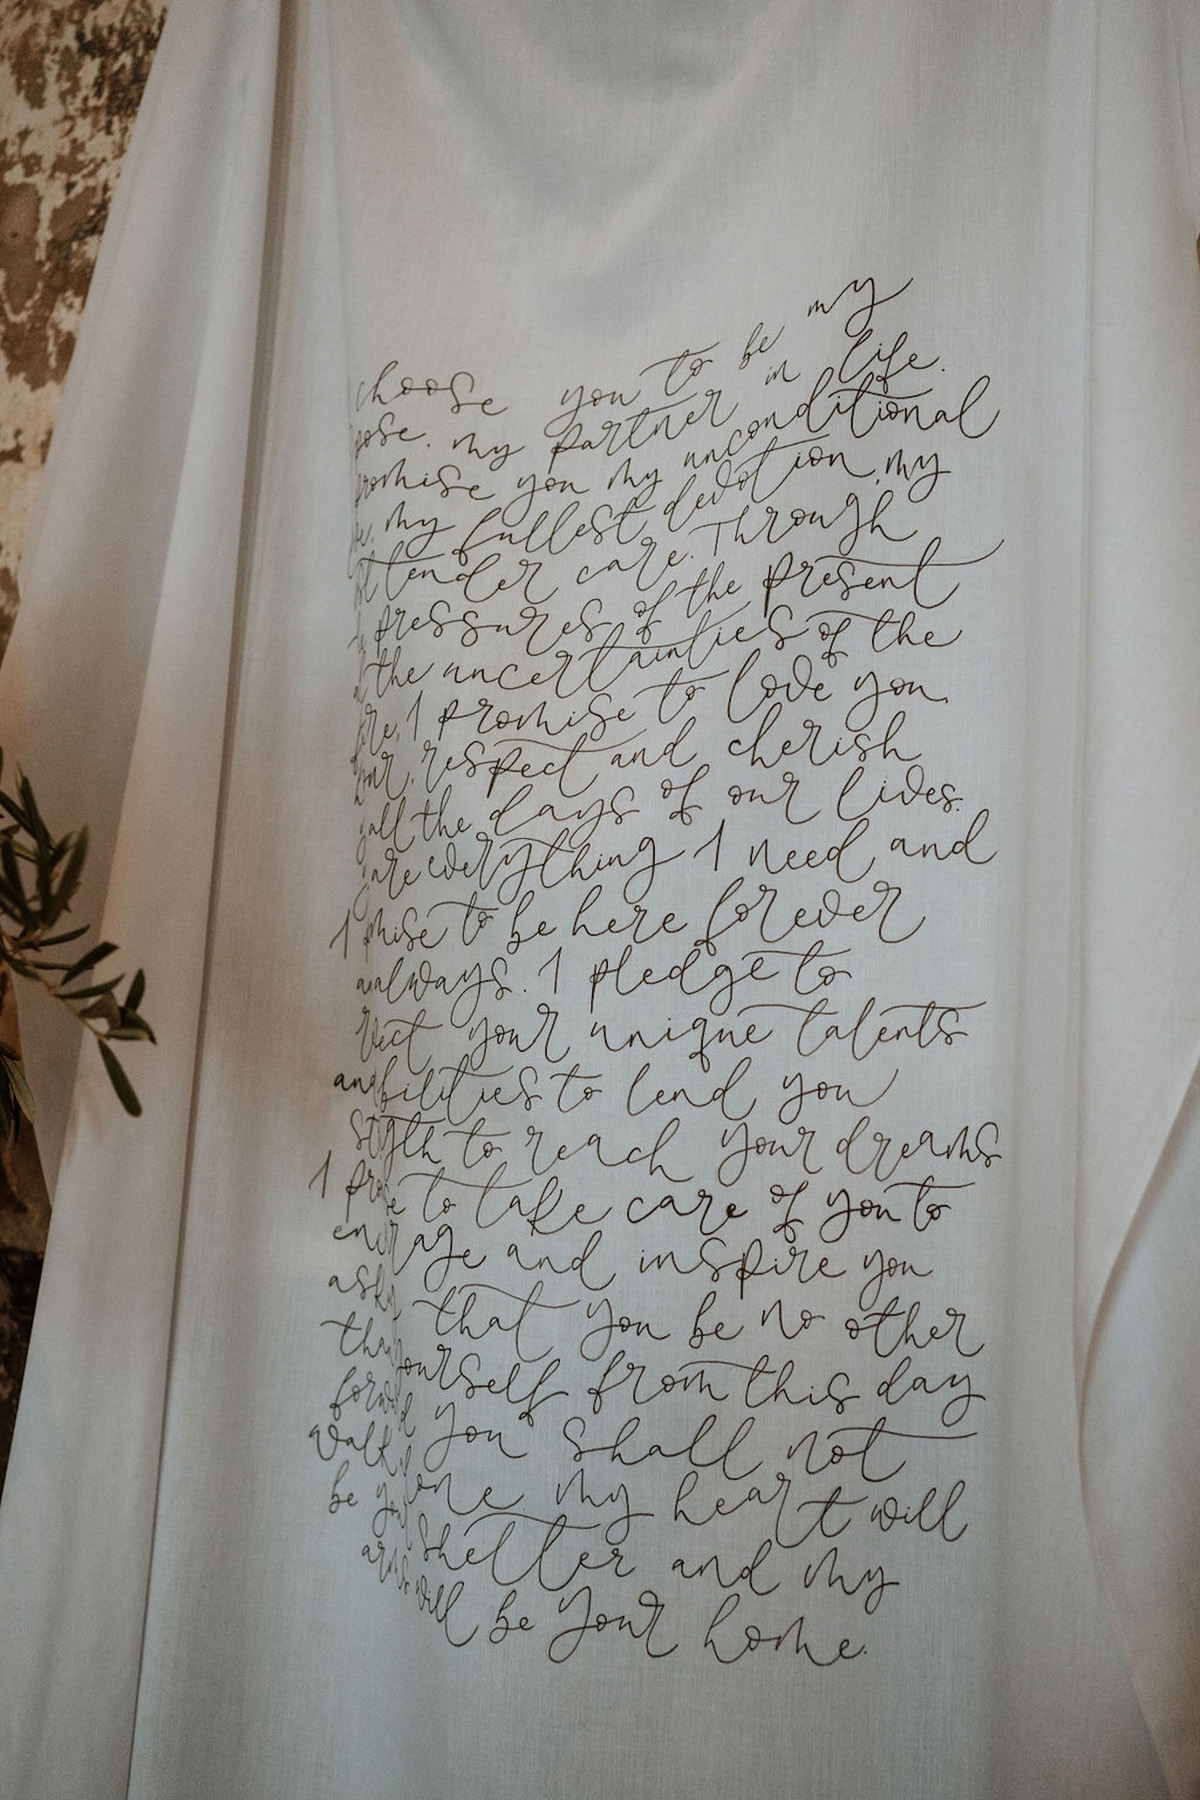 choose you to be my
my partner in life.
promise you my unconditional
my fullest devotion, my
tender care. Through
pressures of the present
the uncertainties of the
I promise to love you,
respect and cherish
all the days of our lives.
are everything I need and
I to be here forever
always. I pledge to
your unique talents
and to lend you
to reach your dreams
I to take care of you to
and inspire you
that you be no other
yourself from this day
you shall not
walk my heart will
be your shelter and my
arms will be your home.